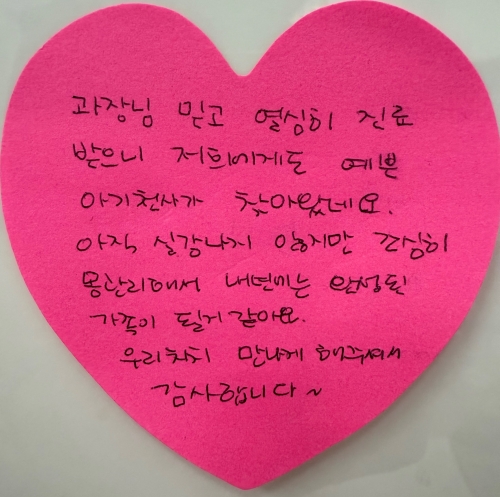 과장님 믿고 열심히 진료
받으니 저희에게도 예쁜
아기천사가 찾아왔네요.
아직 실감나지 않지만 조심히
몸관리해서 내년에는 완성된
가족이 될거 같아요.
우리 만나게 해주셔서
감사합니다~